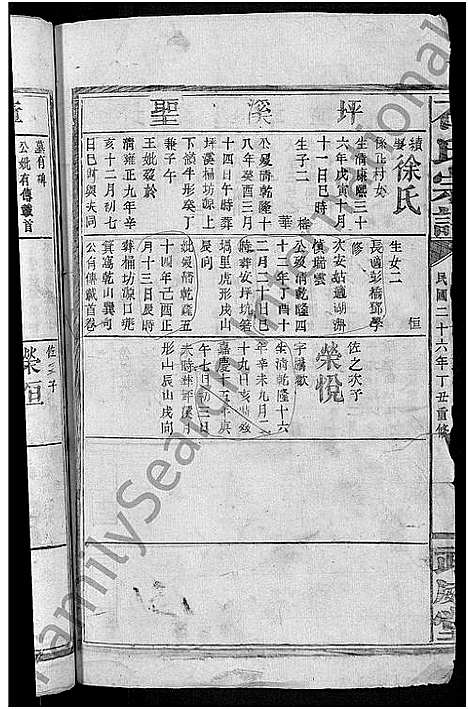 石氏宗譜
民國二十六年丁丑重修
武威堂
坪溪聖
續娶徐氏
保正村女
生清康熙三十
六年戊寅十月
十一日巳時
生子二
華
榕
公歿清乾隆十
八年癸酉三月
十四日午時葬
坪溪楊坊源上
下嶺牛形癸丁
兼子午
王妣葬於
清雍正九年辛
亥十二月初七
日巳時與夫同
生女二
長適彭橋鄧學
修
恒
次安姑適湖濟
慎瑞雲
公歿清乾隆四
十二年丁酉十
二月二十日巳
時葬安坪坑
塢里虎形戌山
辰向
妣歿清乾隆五
十四年己酉正
月十三日辰時
葬楊坊源口虎
公有傳載首卷
佐之次子
榮悅
字騰歡
生清乾隆十六
年辛未九月二
十九日亥時歿
嘉慶十五年庚
午七月初三日
未時葬坪溪月
形山辰山戌向
墓有碑
公妣有傳載首
佐之子
榮恒